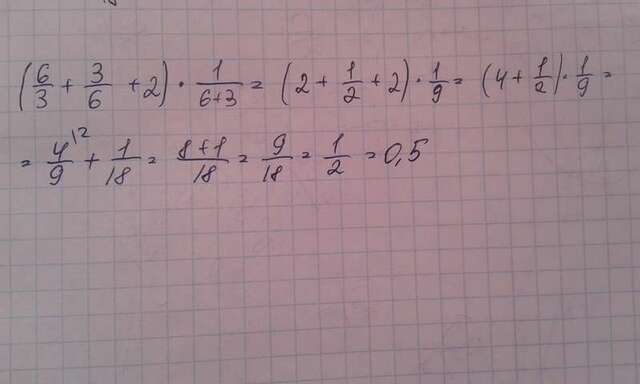 (6/3 + 3/6 + 2) · 1/(6+3) = (2 + 1/2 + 2) · 1/9 = (4 + 1/2) · 1/9 =
= 4^{12}/9 + 1/18 = (8+1)/18 = 9/18 = 1/2 = 0,5